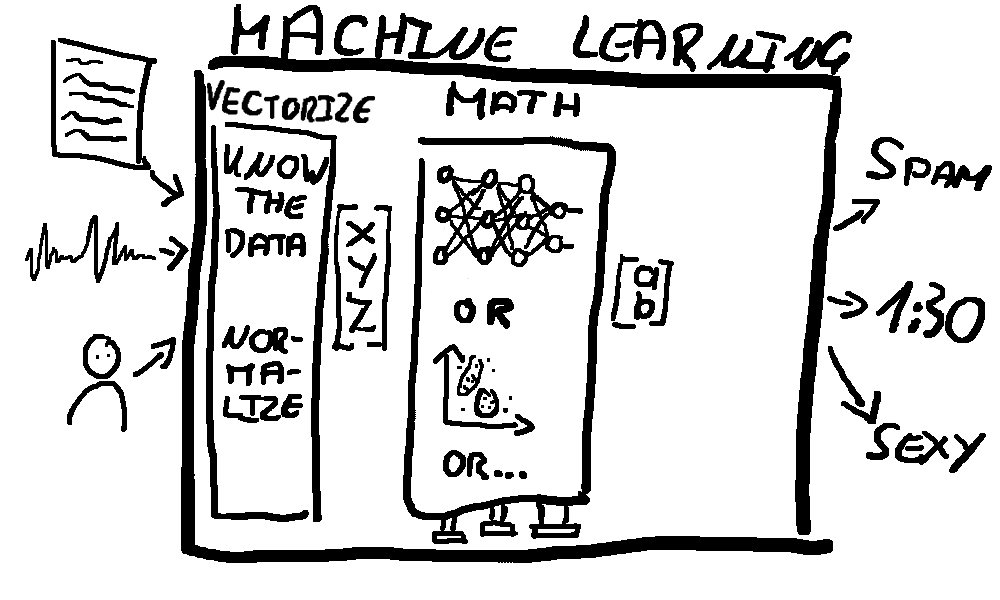 MACHINE LEARNING
VECTORIZE
KNOW
THE
DATA
NOR-
MA-
LIZE
X
Y
Z
MATH
OR
OR...
a
b
SPAM
1:30
SEXY